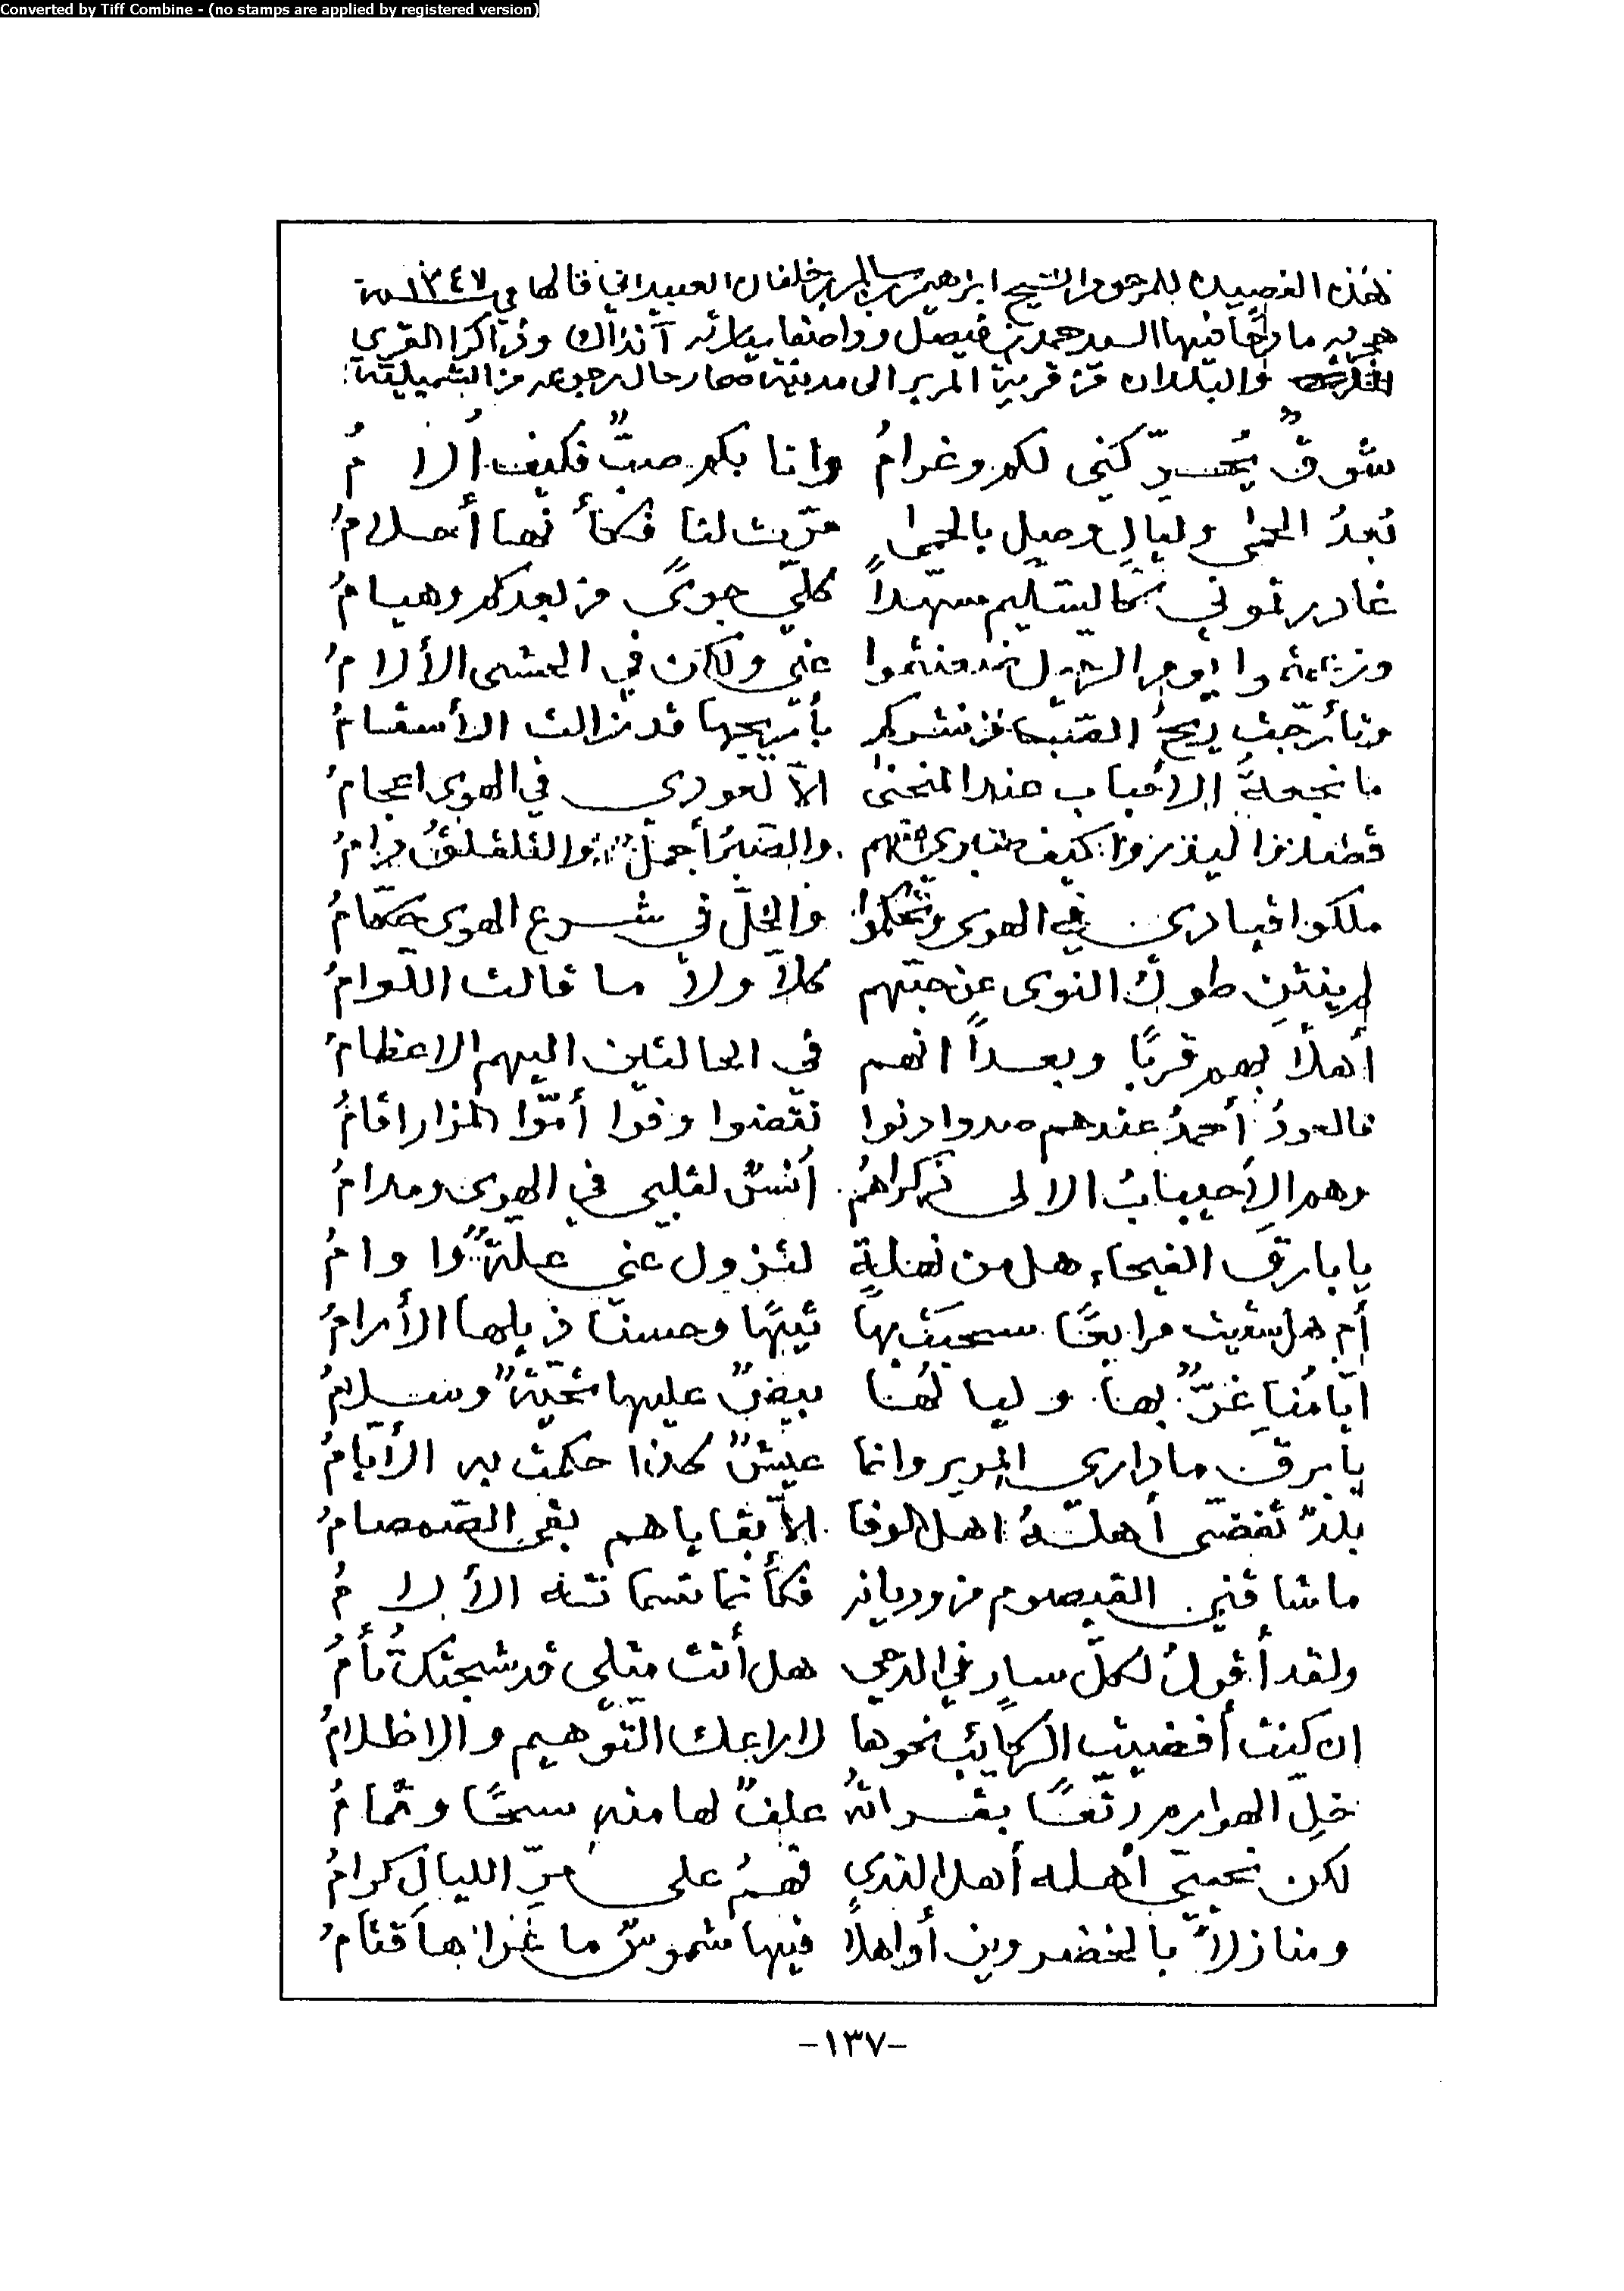 Converted by Tiff Combine - (no stamps are applied by registered version)
هذه القصيدة للمرحوم الشيخ ابراهيم بن سالم بن خلفان العبيداني قالها في سنة ١٣٤٧
هجرية مادحًا فيها السيد حمد بن فيصل وواصفا سيارته آنذاك وذاكرا القرى
والبلدان من قرية المرير الى مدينة صحار حال رجوعه من الشميلية:
شوقٌ يُحرّكني لكم وغرامُ وانا بكم صبٌّ فكيف ألامُ
بُعدُ الحمى وليالِ وصلٍ بالحمى مرّت لنا فكأنها أحلامُ
غادرتموني كالسليم مسهّداً كلّي جوىً من بعدكم وهيامُ
يوم الرحيل عني ولكن في الحشى الألامُ
وتأرّجت ريحُ الصّبا من نشركم بأريجها قد زالت الأسقامُ
ما نجعةُ الاحباب عند المنحنى الاّ لعودي في الهوى اعجامُ
كيف والصبرُ أجملُ والتقلقلُ ذامُ
ملكوا قيادي في الهوى وتحكموا والخلّ في شرع الهوى حكّامُ
لم يثنِ طولُ النوى عن حبّهم كلاّ ولا ما قالت اللوامُ
أهلاً بهم قربًا وبعداً انهم في الحالتين اليهم الاعظامُ
فالعودُ أحمدُ عندهم صدوا دنوا نقضوا وفوا أمّوا المزار اقامُ
وهم الأحيبابُ الالى ذكراهمُ أنسٌ لقلبي في الهوى ومدامُ
يا بارقَ الفيحاء هل من نهلةٍ لتزول عني علّةٌ وأوامُ
أم هل سقيت مرابعًا سحبت بها تيهًا وحسنًا ذيلها الأرامُ
ايّامُنا غرٌّ بها وليالُنا بيضٌ عليها تحيّةٌ وسلامُ
يا برق ما داري المرير وانما عيشٌ كذا حكمت به الأيّامُ
بلدٌ تقضّى أهلهُ اهل الوفا الاّ بقاياهم بقى الصّمصامُ
ما شاقني القيصوم من وديانه فكأنما الألامُ
ولقد أقولُ لكلّ سارٍ في الدجى هل أنت مثلي قد شجتك تُأمُ
ان كنت أفضيت الركائب نحوها لا راعك التوهيم والاظلامُ
خلِ رتّعًا بقراتهُ علفٌ لها منه سحًا وثمامُ
لكن تحيّي أهله أهل الندى فهمُ على مرّ الليالِ كرامُ
ومنازلاً بالخضروين أواهلاً فيها شموسٌ ما غزاها قتامُ
-١٣٧-